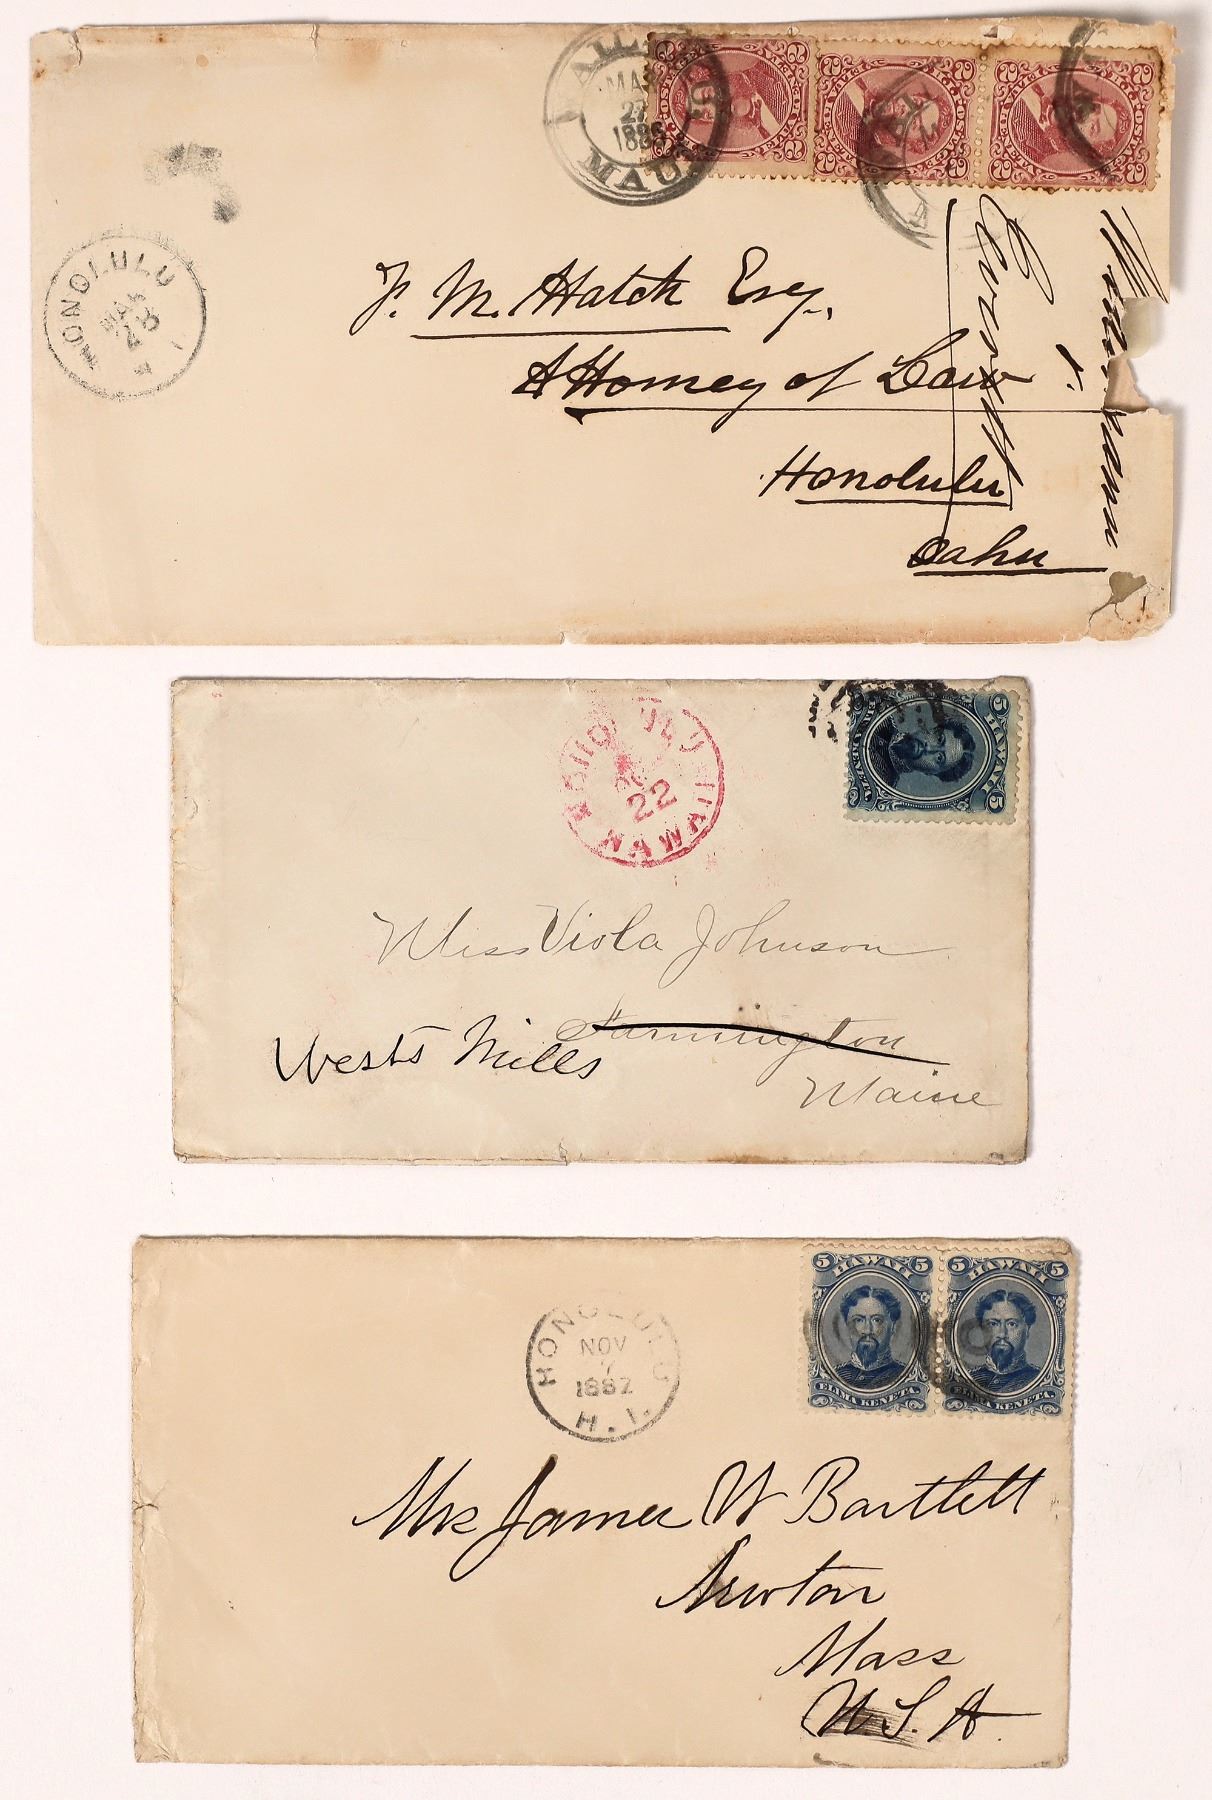 MAR
27
1886
MAUI
HONOLULU
MAR
28
F. M. Hatch Esq.,
Attorney of Law
Honolulu
Oahu
HONOLULU HAWAII
22
HAWAII
5
5
Miss Viola Johnson
Farmington
Wests Mills
Maine
HONOLULU
NOV
7
1882
H. I.
5 HAWAII 5
ELIMA KENETA.
5 HAWAII 5
ELIMA KENETA.
Mrs James W Bartlett
Newton
Mass
U.S.A.